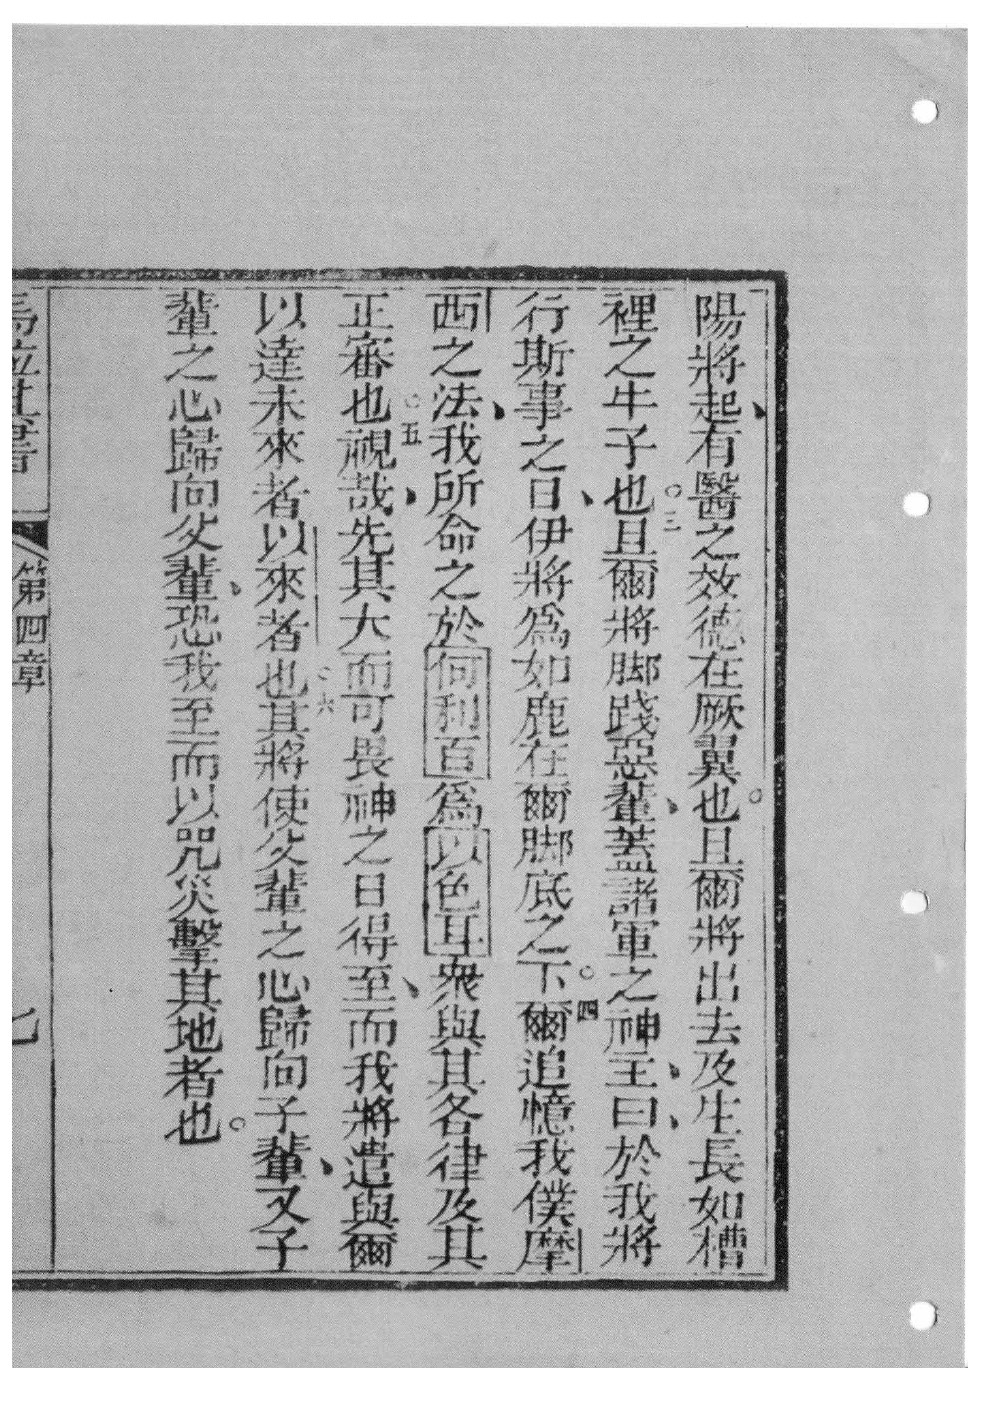 陽將起、有醫之效德在厥翼也。且爾將出去及生長如槽
裡之牛子也。三且爾將脚踐惡輩、蓋諸軍之神主、曰、於我將
行斯事之日、伊將爲如鹿在爾脚底之下。四爾追憶我僕摩
西之法、我所命之於何利百爲以色耳衆與其各律及其
正審也。五視哉、先其大而可畏神之日得至、而我將遣與爾
以達未來者以來者也。六其將使父輩之心歸向子輩、又子
輩之心歸向父輩、恐我至而以咒災擊其地者也。
第四章
七